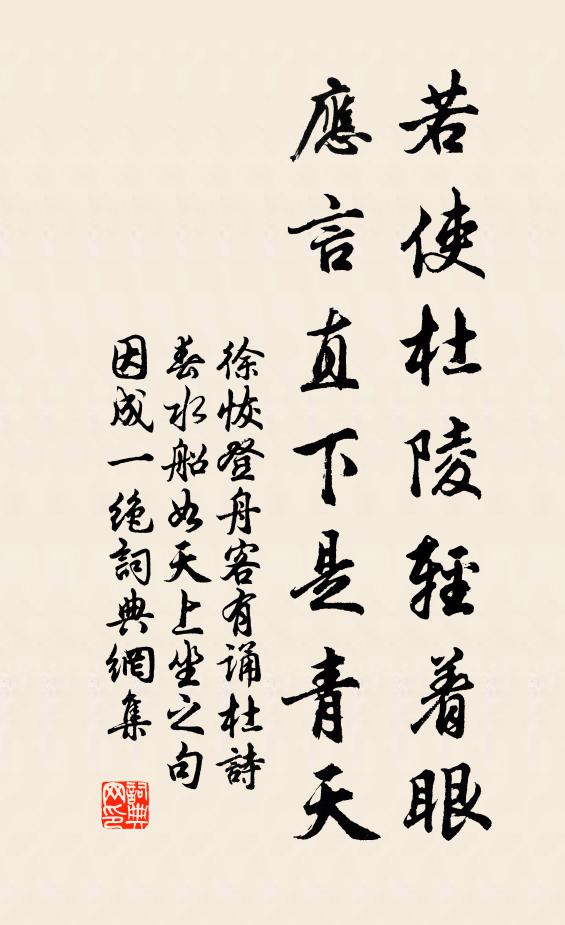 若使杜陵輕着眼
應言直下是青天
徐恢登舟客有誦杜詩
春水船如天上坐之句
因成一絶詞典網集
詞典
网印